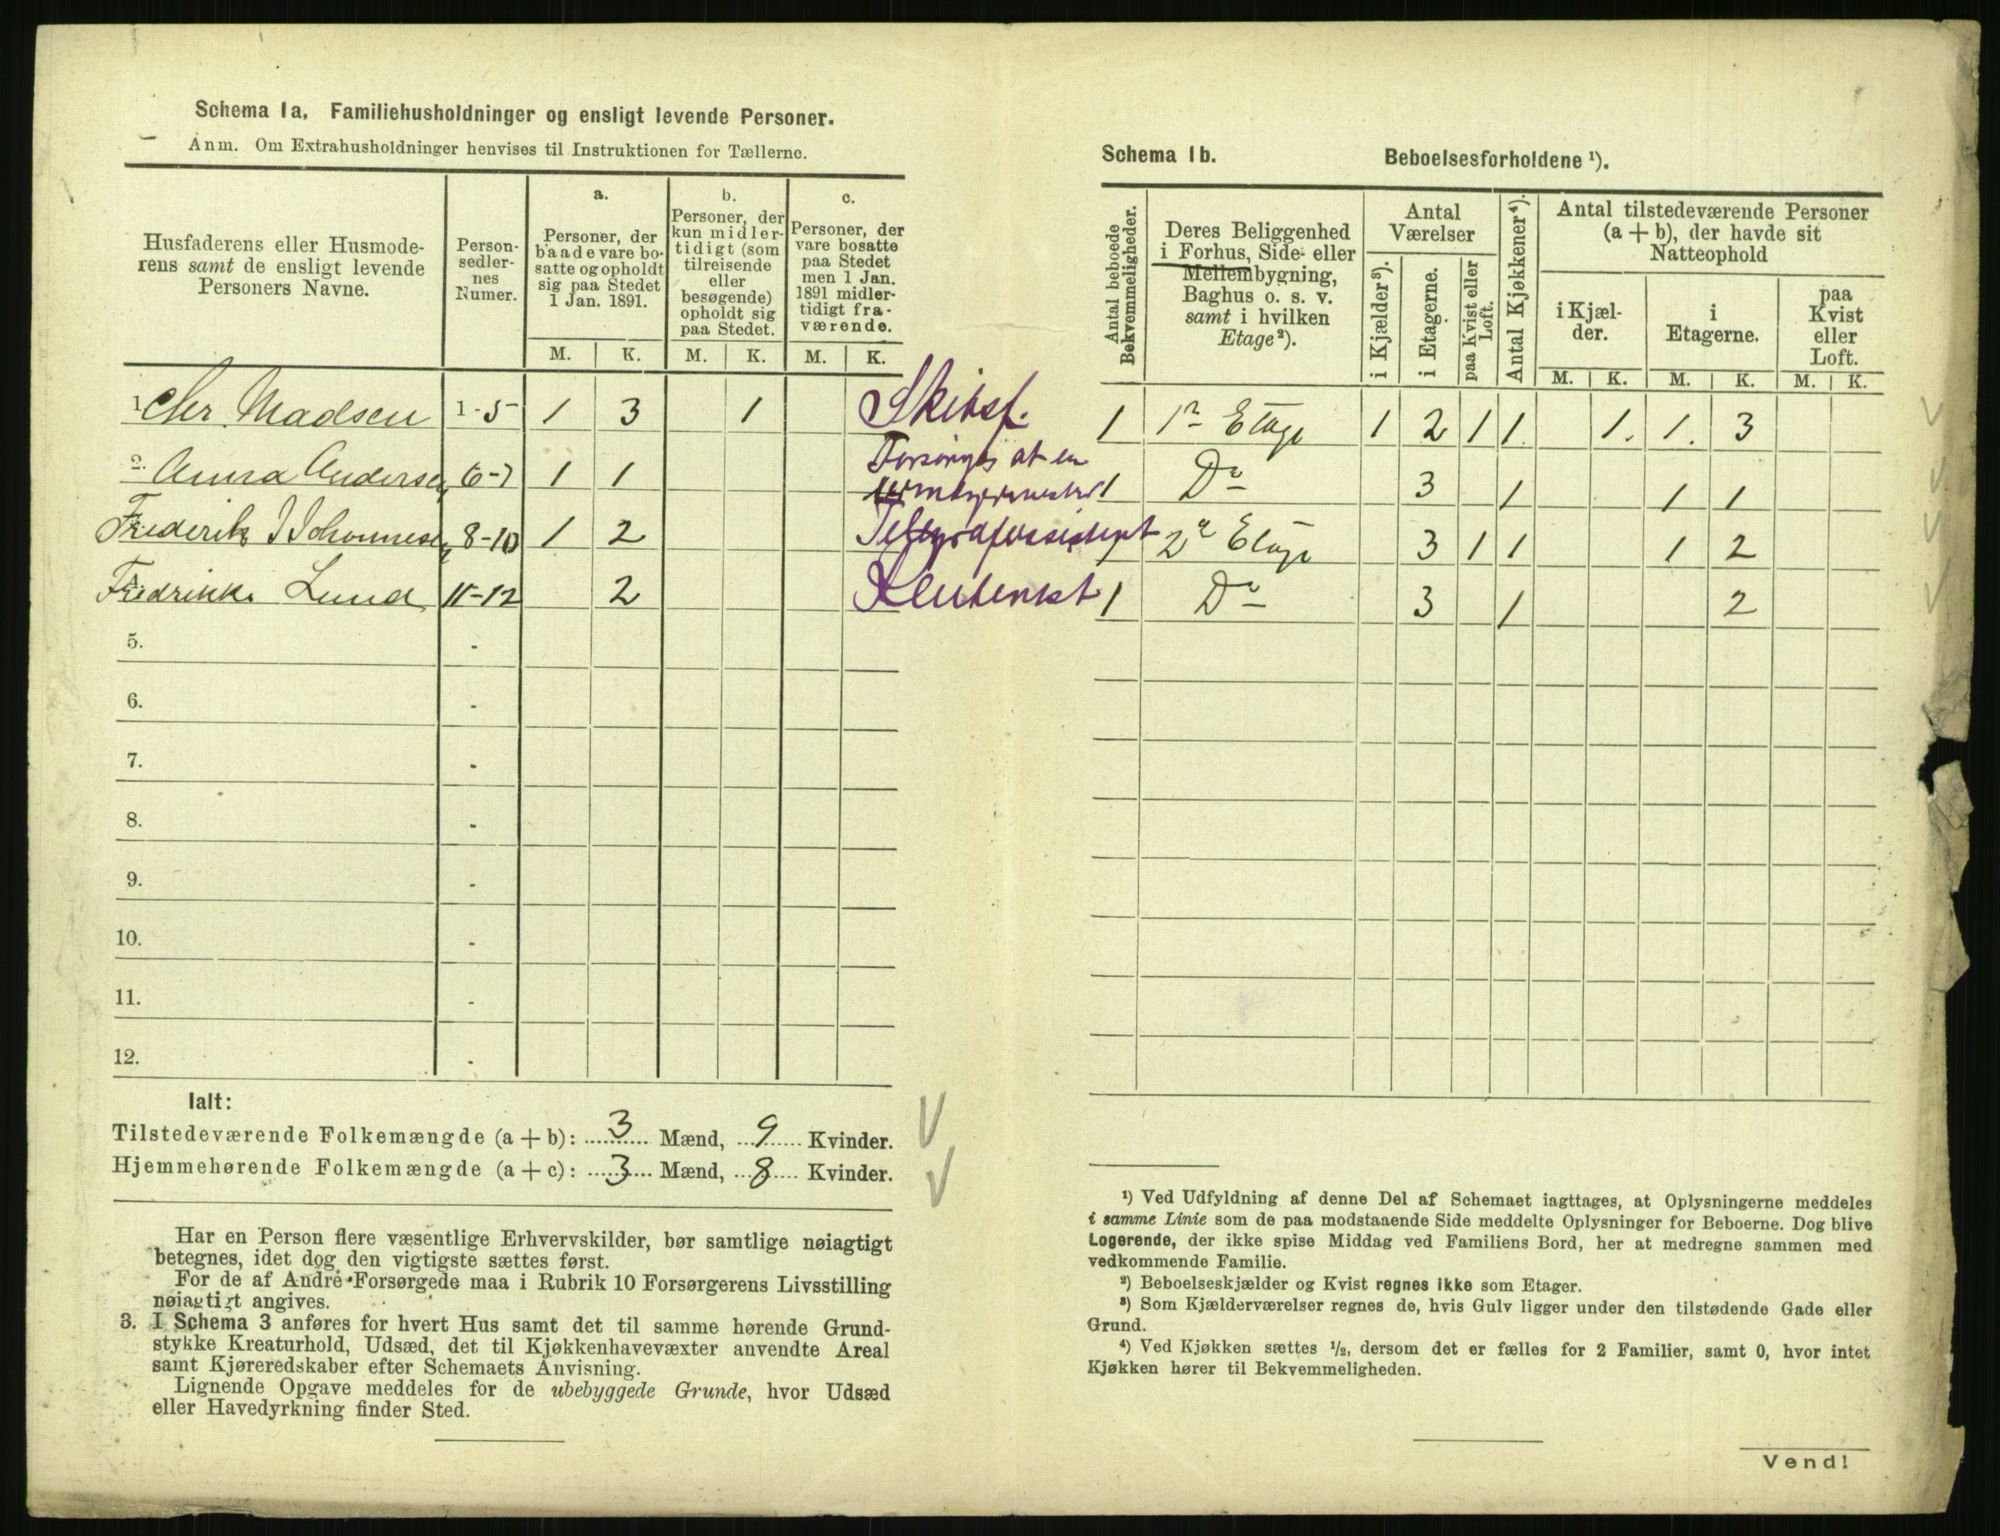 Schema 1a. Familiehusholdninger og ensligt levende Personer.
Anm. Om Extrahusholdninger henvises til Instruktionen for Tællerne.
Husfaderens eller Husmoderens samt de ensligt levende Personers Navne.
Personsedlernes Numer.
a.
Personer, der baade vare bosatte og opholdt sig paa Stedet 1 Jan. 1891.
b.
Personer, der kun midlertidigt (som tilreisende eller besøgende) opholdt sig paa Stedet.
c.
Personer, der vare bosatte paa Stedet men 1 Jan. 1891 midlertidigt fraværende.
M. K. M. K. M. K.
1. Chr. Madsen 1-5 1 3 1 Skibsf.
2. Anna Andersen 6-7 1 1 Forsørges af en
Frederik J Johannesen 8-10 1 2 Telegrafassistent
Fredrikke Lund 11-12 2
5. -
6. -
7. -
8. -
9. -
10. -
11. -
12. -
Ialt:
Tilstedeværende Folkemængde (a + b): 3 Mænd, 9 Kvinder.
Hjemmehørende Folkemængde (a + c): 3 Mænd, 8 Kvinder.
Har en Person flere væsentlige Erhvervskilder, bør samtlige nøiagtigt
betegnes, idet dog den vigtigste sættes først.
For de af André Forsørgede maa i Rubrik 10 Forsørgerens Livsstilling
nøiagtigt angives.
3. I Schema 3 anføres for hvert Hus samt det til samme hørende Grund-
stykke Kreaturhold, Udsæd, det til Kjøkkenhavevæxter anvendte Areal
samt Kjøreredskaber efter Schemaets Anvisning.
Lignende Opgave meddeles for de ubebyggede Grunde, hvor Udsæd
eller Havedyrkning finder Sted.
Schema 1b. Beboelsesforholdene ¹).
Antal beboede Bekvemmeligheder.
Deres Beliggenhed i Forhus, Side- eller Mellembygning, Baghus o. s. v. samt i hvilken Etage²).
Antal Værelser
i Kjælder³).
i Etagerne.
paa Kvist eller Loft.
Antal Kjøkkener⁴).
Antal tilstedeværende Personer (a + b), der havde sit Natteophold
i Kjælder.
i Etagerne.
paa Kvist eller Loft.
M. K. M. K. M. K.
1 1ᵉ Etage 1 2 1 1. 1. 1. 3
1 Do 3 1 1 1
1 2ᵉ Etage 3 1 1 1 2
1 Do 3 1 2
¹) Ved Udfyldning af denne Del af Schemaet iagttages, at Oplysningerne meddeles
i samme Linie som de paa modstaaende Side meddelte Oplysninger for Beboerne. Dog blive
Logerende, der ikke spise Middag ved Familiens Bord, her at medregne sammen med
vedkommende Familie.
²) Beboelseskjælder og Kvist regnes ikke som Etager.
³) Som Kjælderværelser regnes de, hvis Gulv ligger under den tilstødende Gade eller
Grund.
⁴) Ved Kjøkken sættes ½, dersom det er fælles for 2 Familier, samt 0, hvor intet
Kjøkken hører til Bekvemmeligheden.
Vend!